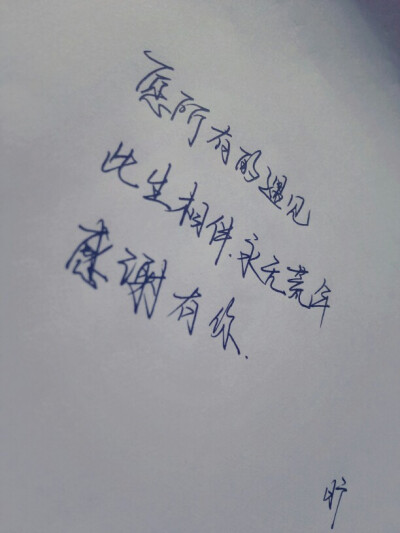 愿所有的遇见
此生相伴.永无荒年
感谢有你.
旷